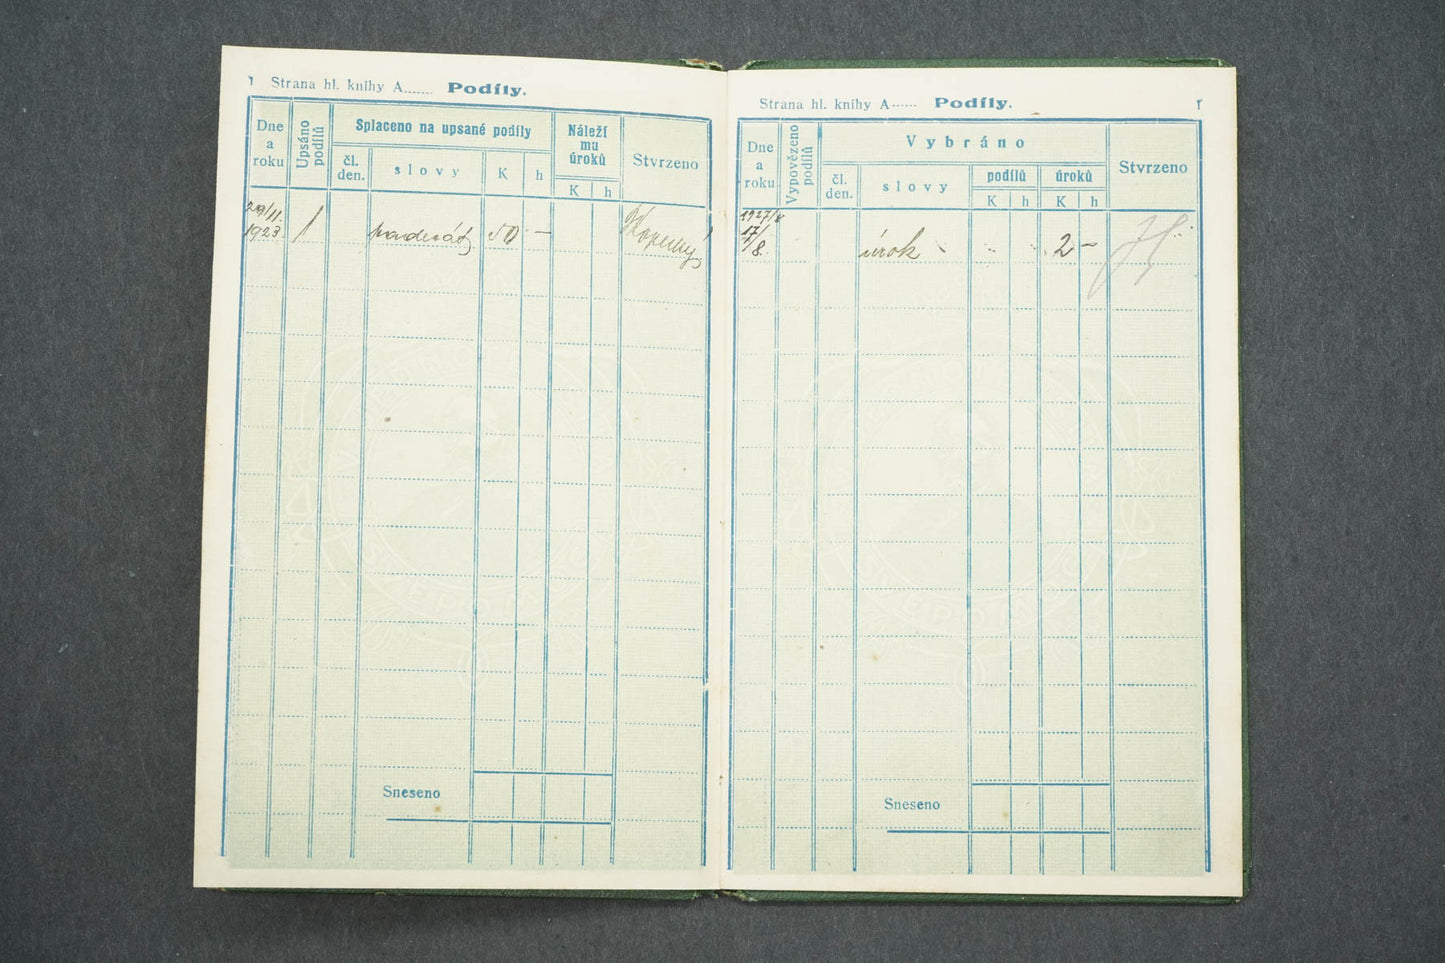 1
Strana hl. knihy A...... Podíly.
Dne
a
roku
Upsáno
podílů
Splaceno na upsané podíly
čl.
den.
slovy
K
h
Náleží
mu
úroků
K
h
Stvrzeno
29/11.
1923.
1
padesát
50
—
Kopecký
Sneseno
Strana hl. knihy A...... Podíly.
1
Dne
a
roku
Vypovězeno
podílů
Vybráno
čl.
den.
slovy
podílů
K
h
úroků
K
h
Stvrzeno
17/8
úrok
2
—
Sneseno